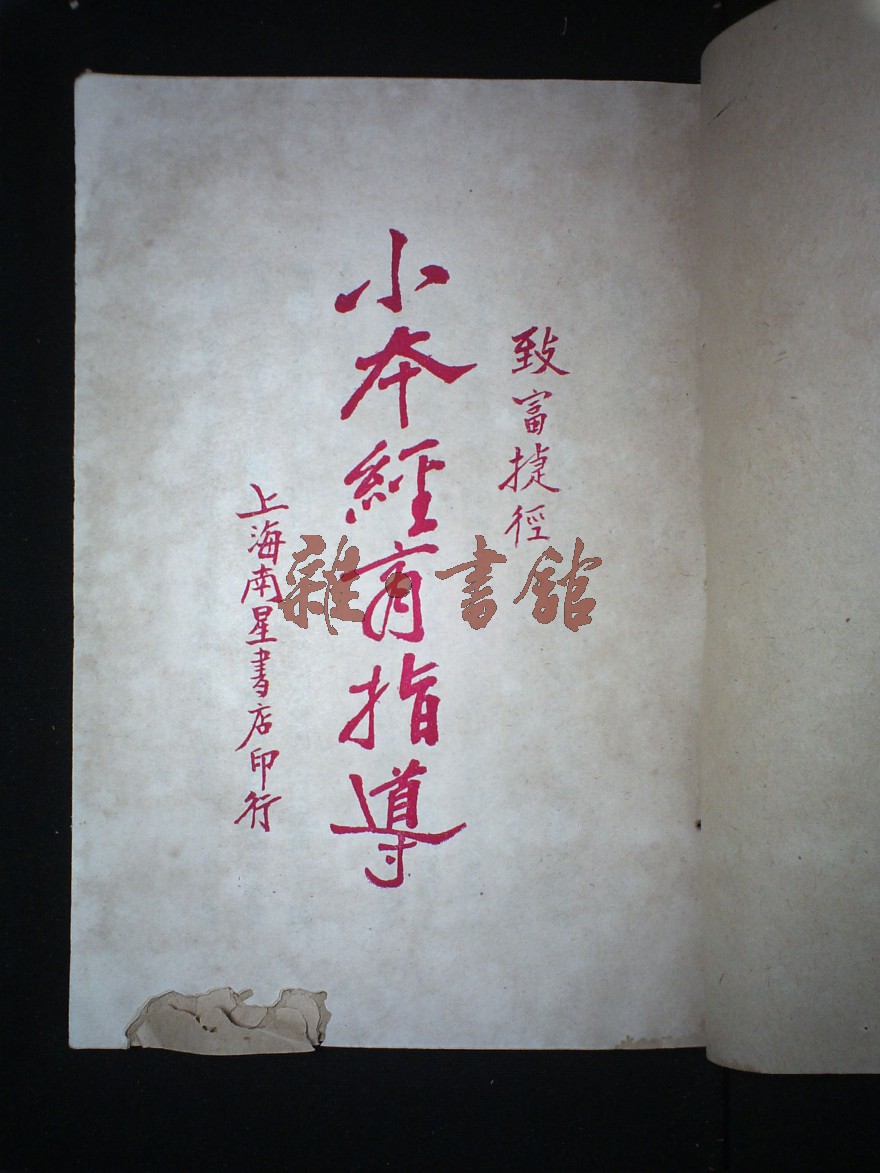 致富捷徑
小本經商指導
上海南星書店印行
雜·書館